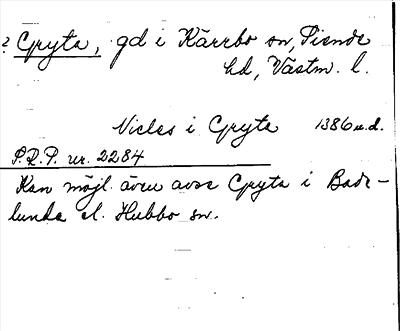 ? Gryta, gd i Kärrbo sn, Siende
hd, Västm. l.
Niclas i Gryta 1386 u.d.
S.R.P. nr. 2284
Kan möjl. även avse Gryta i Bade-
lunda el. Hubbo sn.